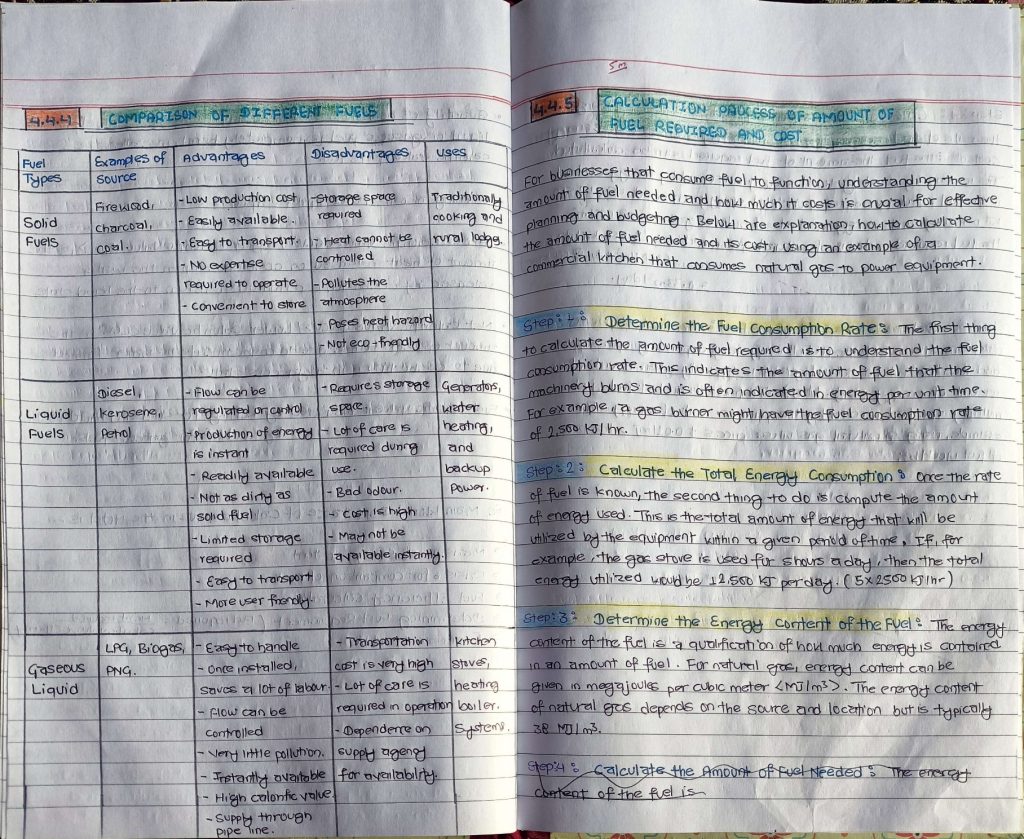 4.4.4 COMPARISON OF DIFFERENT FUELS
Fuel Types
Examples of Source
Advantages
Disadvantages
Uses
Solid
Fuels
Firewood,
charcoal,
coal.
- Low production cost
- Easily available.
- Easy to transport.
- No expertise
required to operate
- Convenient to store
- Storage space
required
- Heat cannot be
controlled
- Pollutes the
atmosphere
- Poses heat hazard
- Not eco-friendly
Traditionally
cooking and
rural lodge,
Liquid
Fuels
Diesel,
kerosene,
Petrol
- Flow can be
regulated or control
- Production of energy
is instant
- Readily available
- Not as dirty as
solid fuel
- Limited storage
required
- Easy to transport
- More user friendly.
- Requires storage
space.
- Lot of care is
required during
use.
- Bad odour.
- Cost is high
- May not be
available instantly.
Generators,
water
heating,
and
backup
power.
Gaseous
Liquid
LPG, Biogas,
PNG.
- Easy to handle
- Once installed,
saves a lot of labour
- Flow can be
controlled
- Very little pollution.
- Instantly available
- High calorific value.
- Supply through
pipe line.
- Transportation
cost is very high
- Lot of care is
required in operation
- Dependence on
supply agency
for availability.
kitchen
stoves,
heating
boiler.
Systems.
5m
4.4.5 CALCULATION PROCESS OF AMOUNT OF
FUEL REQUIRED AND COST
For businesses that consume fuel to function, understanding the
amount of fuel needed and how much it costs is crucial for effective
planning and budgeting. Below are explanation, how to calculate
the amount of fuel needed and its cost, using an example of a
commercial kitchen that consumes natural gas to power equipment.
Step: 1: Determine the Fuel Consumption Rate: The first thing
to calculate the amount of fuel required is to understand the fuel
consumption rate. This indicates the amount of fuel that the
machinery burns and is often indicated in energy per unit time.
For example, a gas burner might have the fuel consumption rate
of 2,500 KJ/hr.
Step: 2: Calculate the Total Energy Consumption: Once the rate
of fuel is known, the second thing to do is compute the amount
of energy used. This is the total amount of energy that will be
utilized by the equipment within a given period of time. If, for
example, the gas stove is used for 5 hours a day, then the total
energy utilized would be 12,500 KJ per day. (5 x 2500 KJ/hr)
Step: 3: Determine the Energy Content of the Fuel: The energy
content of the fuel is a qualification of how much energy is contained
in an amount of fuel. For natural gas, energy content can be
given in megajoules per cubic meter <MJ/m³>. The energy content
of natural gas depends on the source and location but is typically
38 MJ/m³.
Step: 4: Calculate the Amount of Fuel Needed: The energy
content of the fuel is